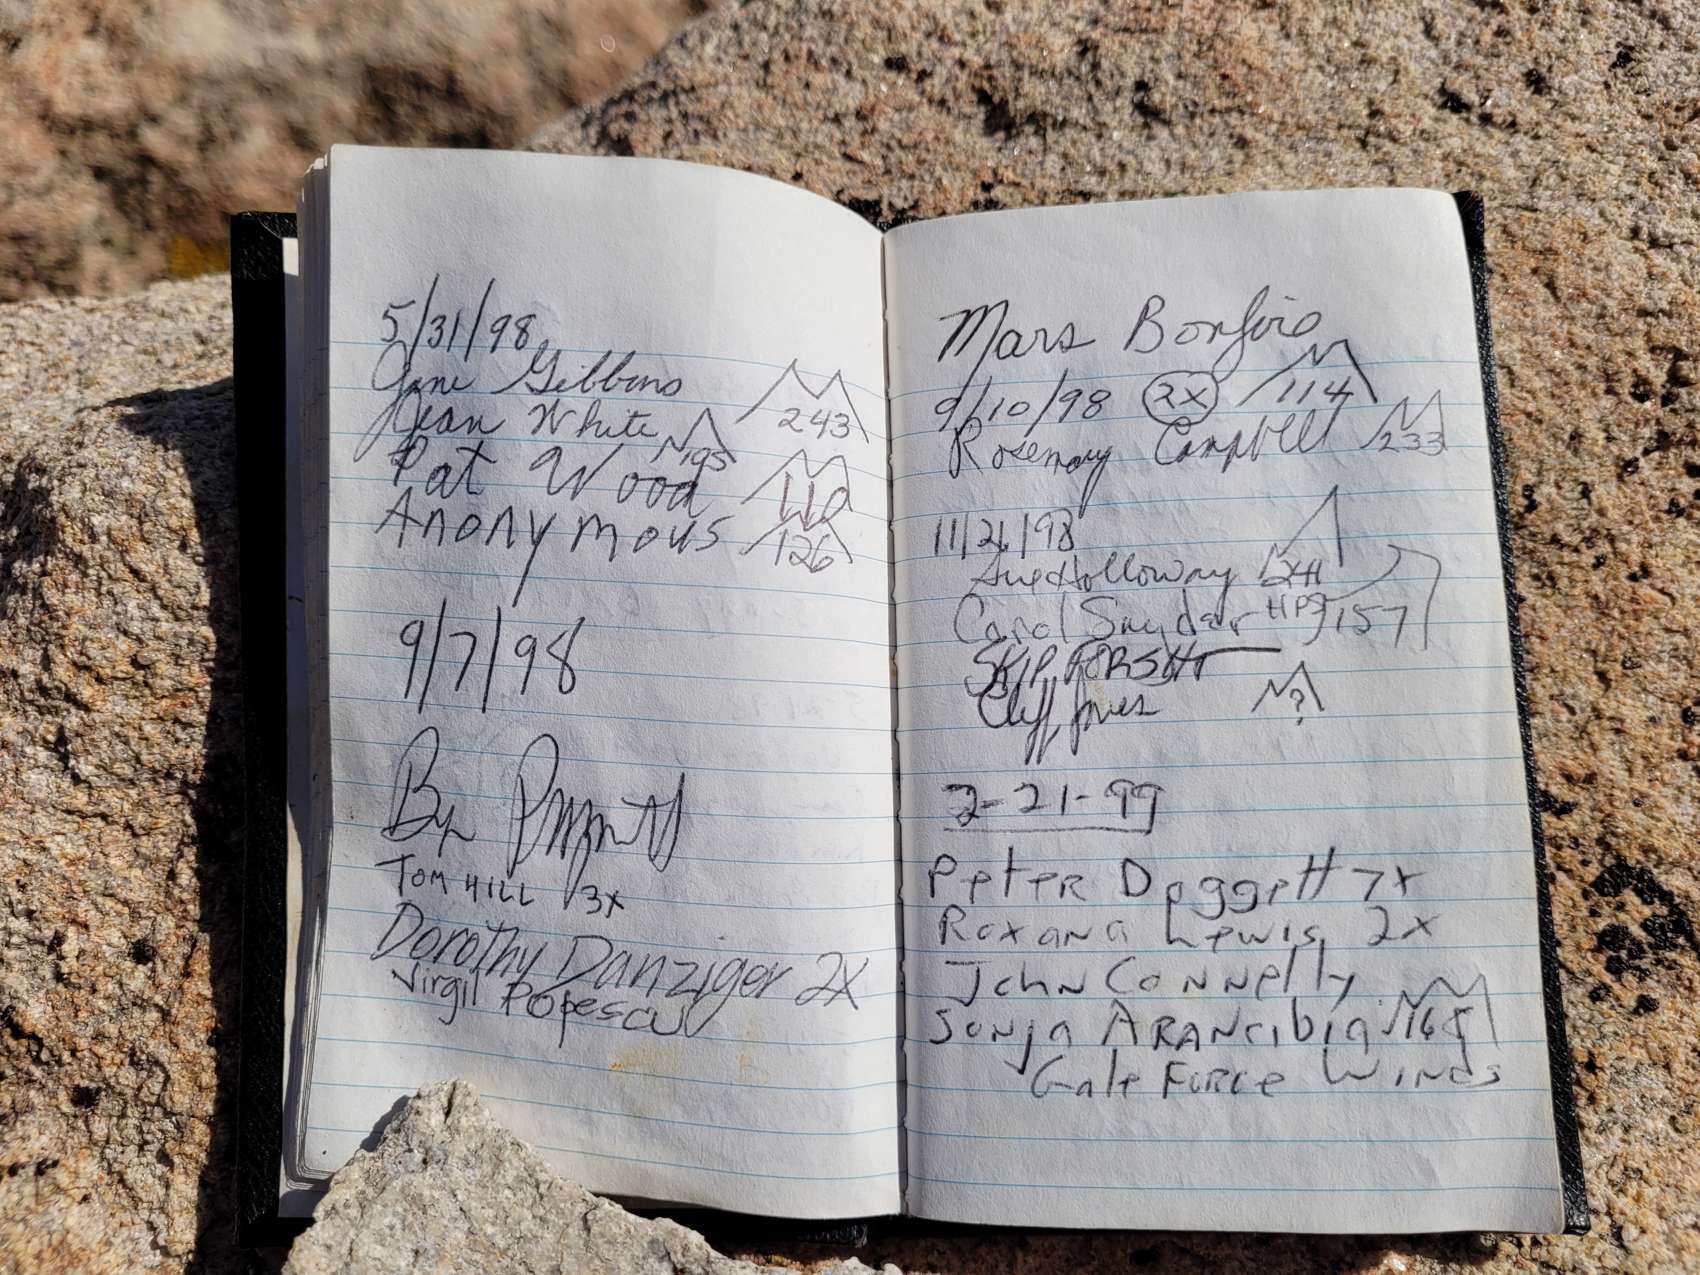 5/31/98
Gene Gibbons 243
Jean White 195
Pat Wood 110
Anonymous 126
9/7/98
TOM HILL 3x
Dorothy Danziger 2X
Virgil Popescu
Mars Bonfire
9/10/98 2x 114
Rosemary Campbell 233
11/21/98
Sue Holloway 241
Carol Snyder HPS 157
SKIP FORSHT
Cliff Jones ?
2-21-99
Peter Doggett 7x
Roxana Lewis 2x
John Connelly
Sonja Arancibia 165
Gale Force Winds